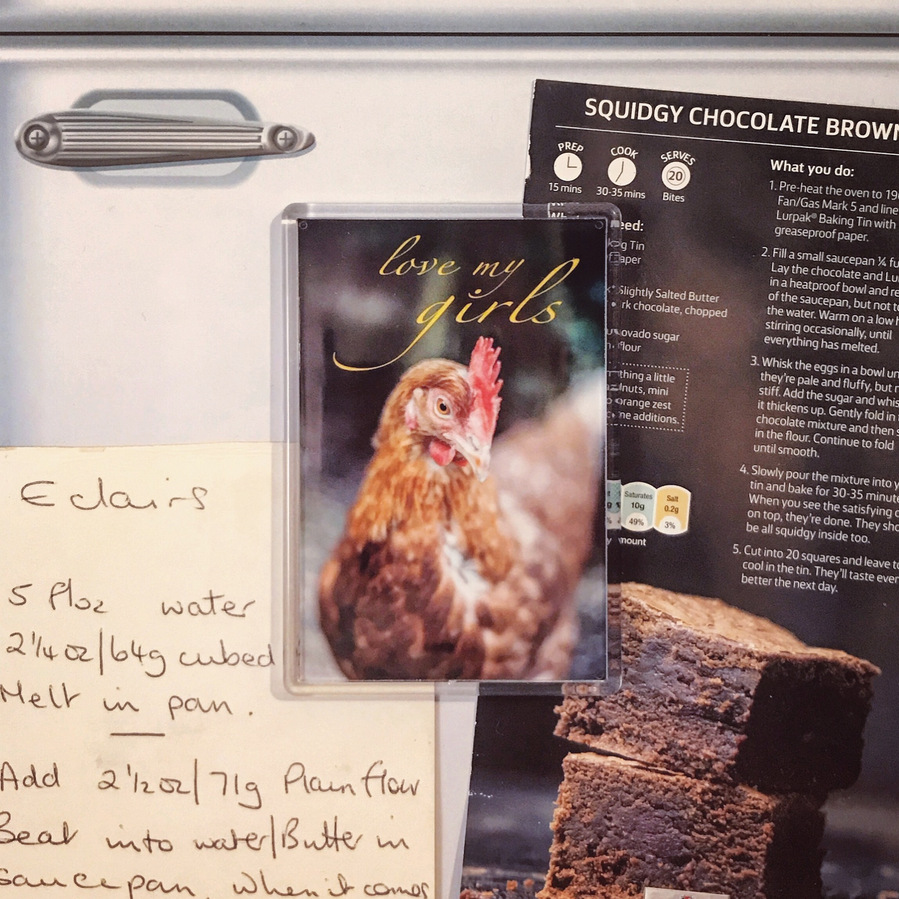 love my
girls
Eclairs
5 floz water
2 1/4 oz/64g cubed
Melt in pan.
Add 2 1/2 oz/71g Plain flour
Beat into water/Butter in
saucepan, when it comes
SQUIDGY CHOCOLATE BROWN
PREP
15 mins
COOK
30-35 mins
SERVES
20
Bites
eed:
Tin
aper
Slightly Salted Butter
rk chocolate, chopped
ovado sugar
flour
thing a little
nuts, mini
orange zest
additions.
Saturates
10g
49%
Salt
0.2g
3%
mount
What you do:
1. Pre-heat the oven to 19
Fan/Gas Mark 5 and line
Lurpak® Baking Tin with
greaseproof paper.
2. Fill a small saucepan ¼ fu
Lay the chocolate and Lu
in a heatproof bowl and re
of the saucepan, but not to
the water. Warm on a low h
stirring occasionally, until
everything has melted.
3. Whisk the eggs in a bowl un
they're pale and fluffy, but n
stiff. Add the sugar and whis
it thickens up. Gently fold in t
chocolate mixture and then s
in the flour. Continue to fold
until smooth.
4. Slowly pour the mixture into y
tin and bake for 30-35 minute
When you see the satisfying c
on top, they're done. They sho
be all squidgy inside too.
5. Cut into 20 squares and leave to
cool in the tin. They'll taste even
better the next day.